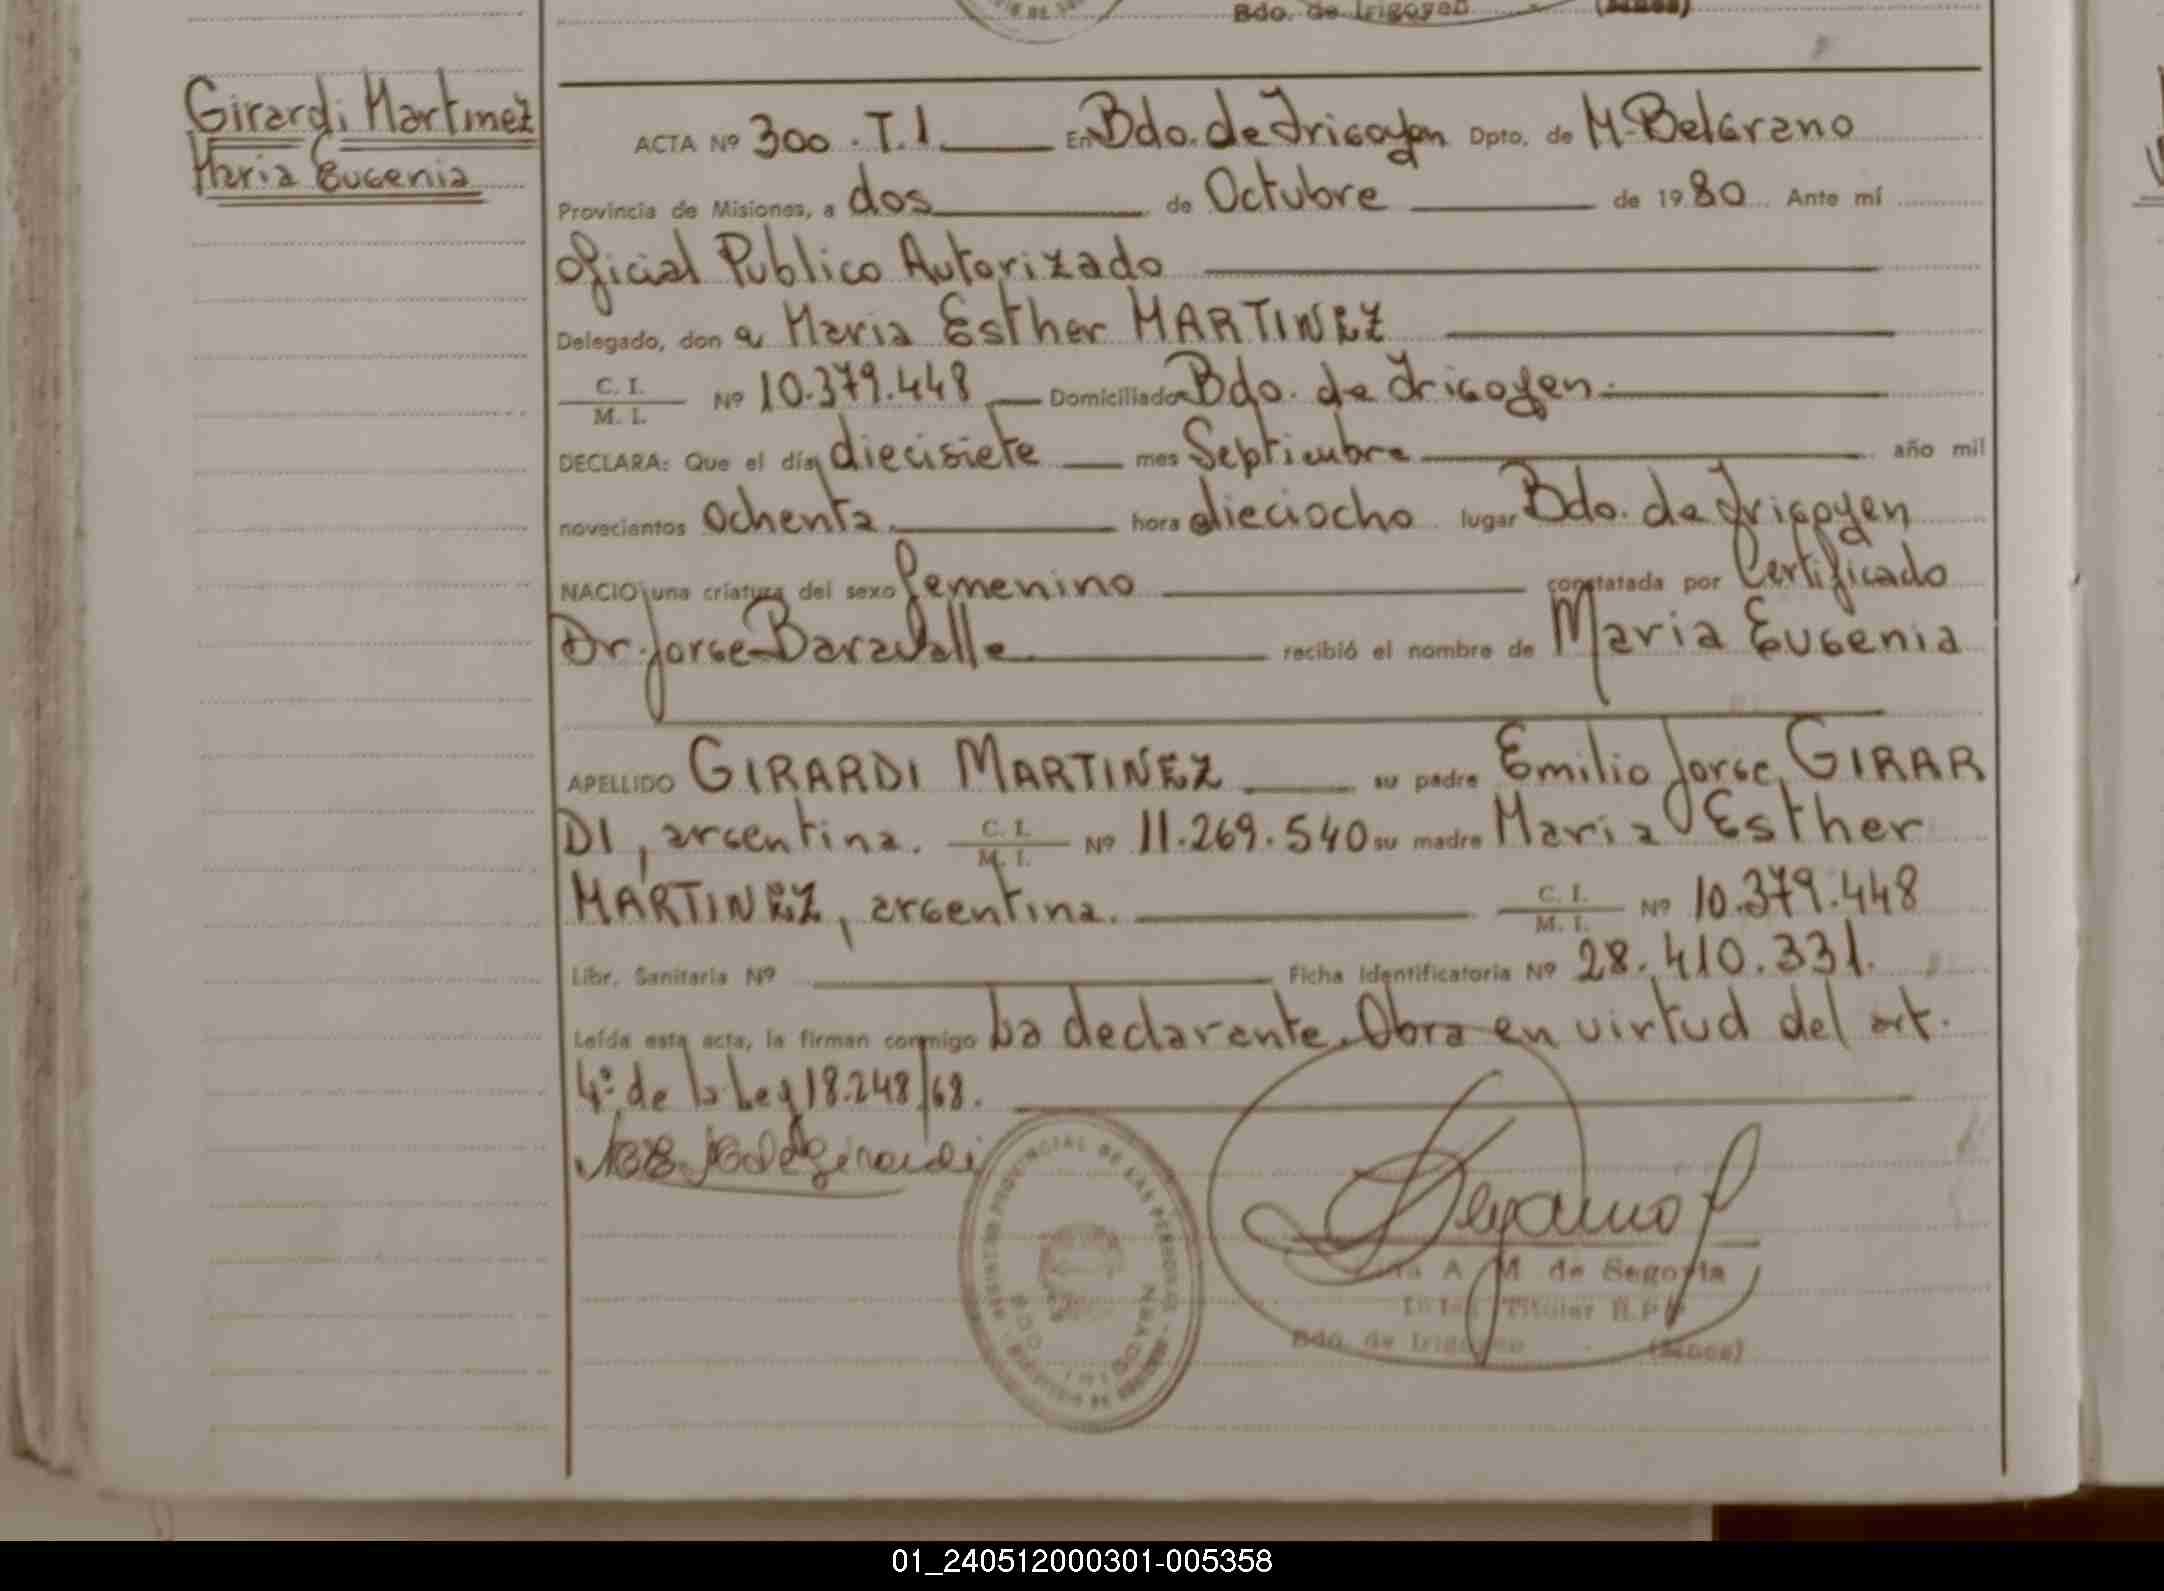 Bdo. de Irigoyen (Mnes)
Girardi Martinez
Maria Eugenia
ACTA Nº 300 . T. I. En Bdo. de Irigoyen Dpto. de M. Belgrano
Provincia de Misiones, a dos de Octubre de 1980 Ante mí
Oficial Publico Autorizado
Delegado, don a Maria Esther MARTINEZ
C. I.
M. I. Nº 10.379.448 Domiciliado Bdo. de Irigoyen.
DECLARA: Que el día diecisiete mes Septiembre año mil
novecientos ochenta hora dieciocho lugar Bdo. de Irigoyen
NACIO una criatura del sexo femenino constatada por Certificado
Dr. Jorge Baravalle recibió el nombre de Maria Eugenia
APELLIDO GIRARDI MARTINEZ su padre Emilio Jorge GIRAR
DI, argentina. C. I. M. I. Nº 11.269.540 su madre Maria Esther
MARTINEZ, argentina. C. I. M. I. Nº 10.379.448
Libr. Sanitaria Nº Ficha Identificatoria Nº 28.410.331.
Leída esta acta, la firman conmigo la declarante. Obra en virtud del art.
4º de la Ley 18.248/68.
A. M. de Segovia
Titular R.P.
Bdo. de Irigoyen (Mnes)
01_240512000301-005358